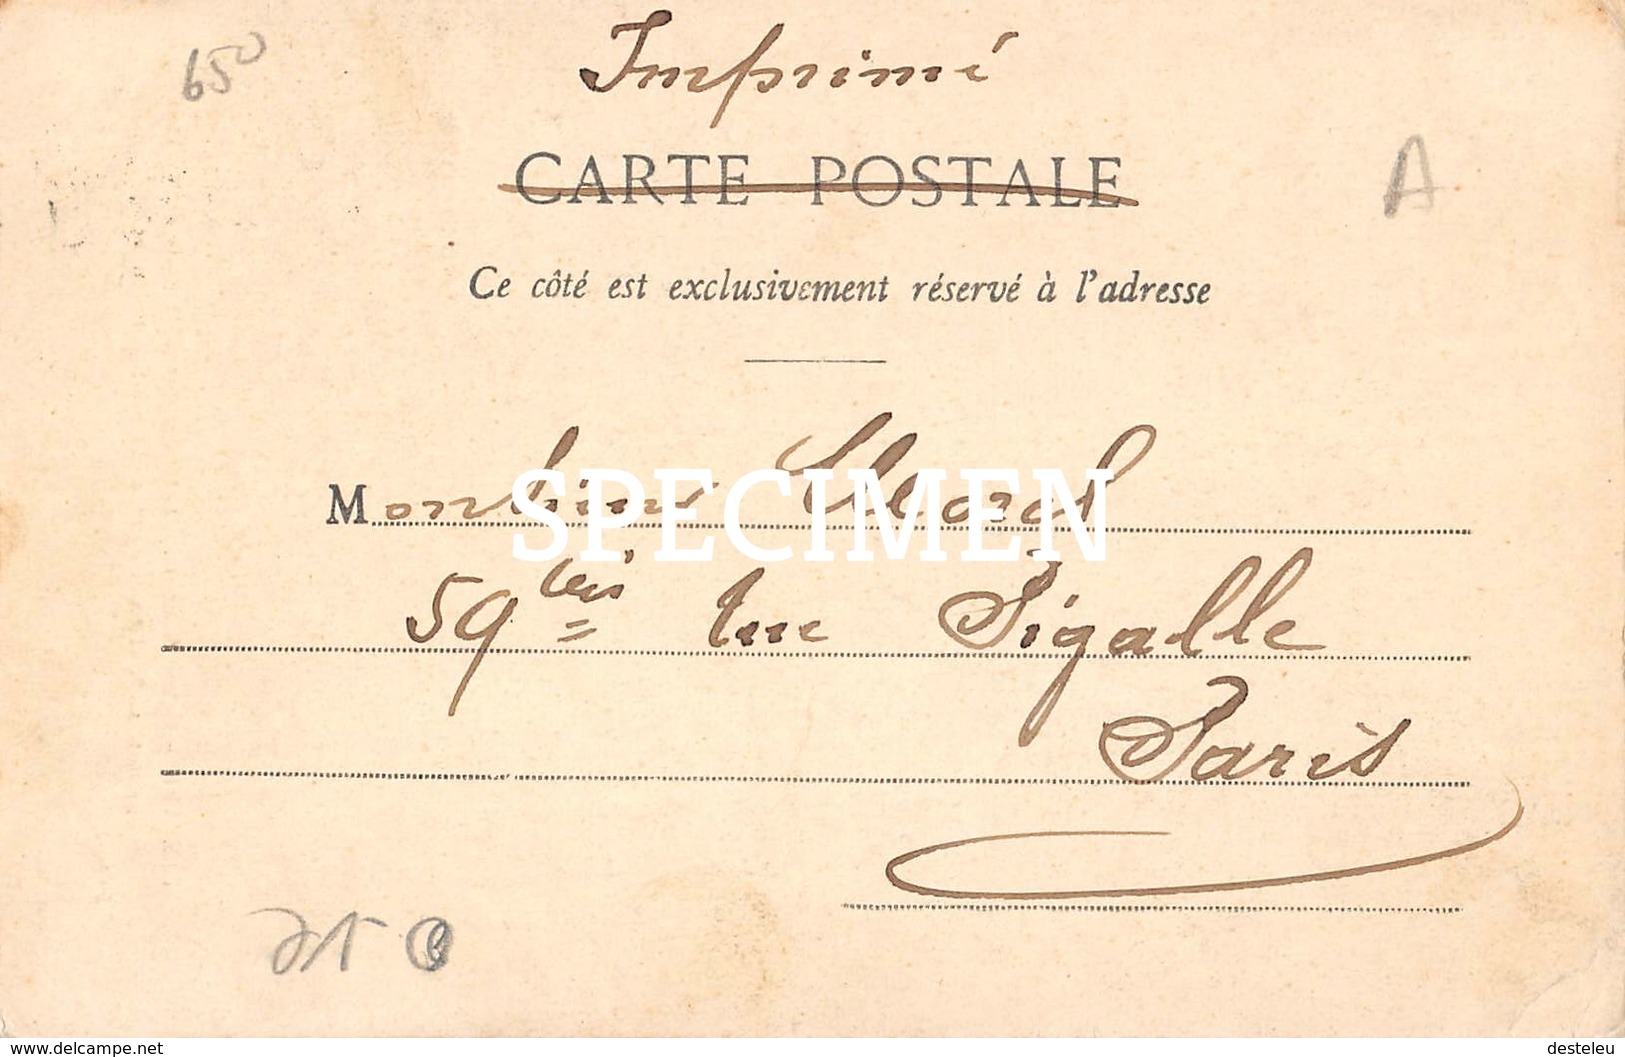 650
Imprimé
CARTE POSTALE
A
Ce côté est exclusivement réservé à l'adresse
Monsieur
SPECIMEN
59 ter Rue Pigalle
Paris
www.delcampe.net
desteleu